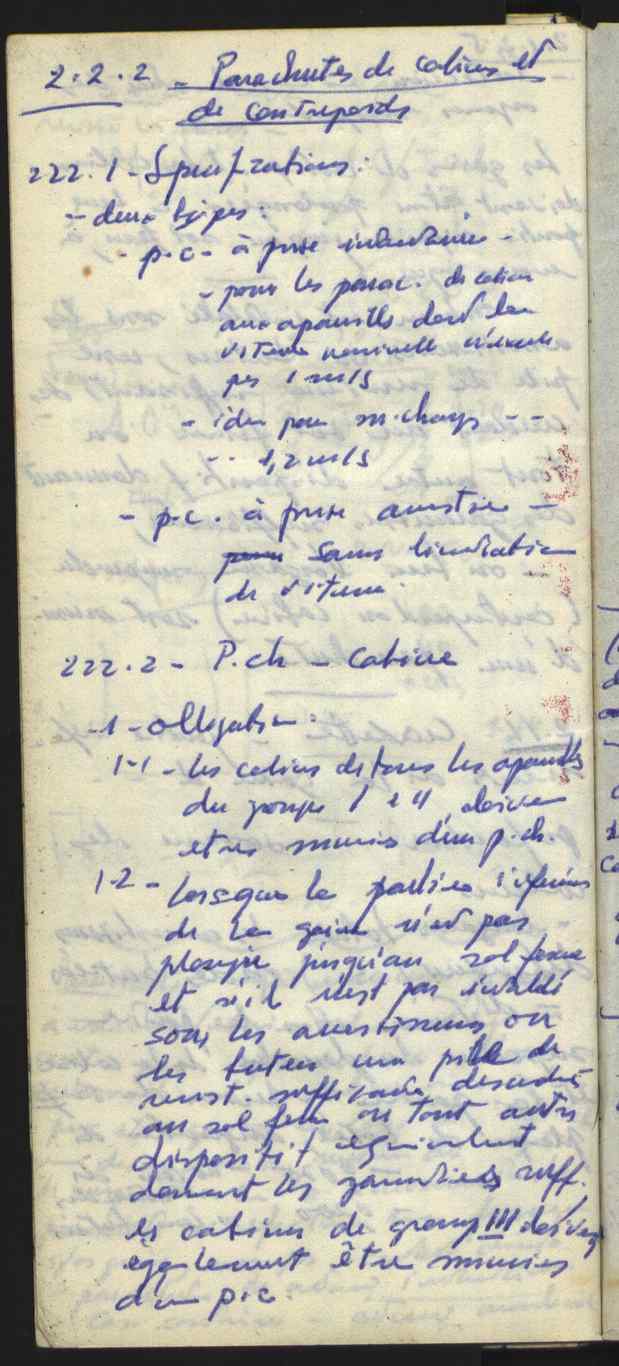 2.2.2 - Parachutes de cabines et
de contrepoids
222.1 - Spécifications :
- deux types :
- p.c. à prise instantanée -
- pour les parac. de cabine
aux appareils dont la
vitesse nominale n'excède
pas 1 m/s
- idem pour m. charge - -
- - 1,2 m/s
- p.c. à prise amortie -
sans limitation
de vitesse.
222.2 - P.ch - Cabine
-1- obligation :
1-1 - les cabines de tous les appareils
du groupe I et II doivent
etres munies d'un p.ch.
1-2 - Lorsque la partie inférieure
de la gaine n'est pas
plongée jusqu'au sol ferme
et s'il n'est pas installé
sous les amortisseurs ou
les butées une pile de
resist. suffisante descendue
au sol ferme ou tout autre
dispositif equivalent
donnant les garanties suff.
les cabines de groupe III doivent
également être munies
d'un p.c.